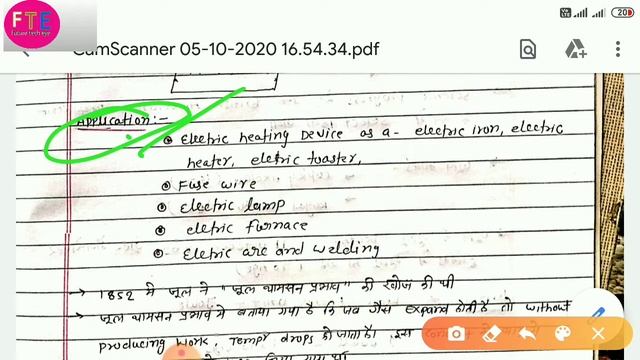 FTE
Future tech eye
20
CamScanner 05-10-2020 16.54.34.pdf
Application:-
Electric heating Device as a- electric iron, electric
heater, eletric toaster,
Fuse wire
Electric lamp
eletric furnace
Eletric arc and welding
→ 1852 मे जूल ने "जूल थामसन प्रभाव" की खोज की थी
→ जूल थामसन प्रभाव मे बताया गया है कि जब गैस expand होती है तो without
producing work, tempr drops हो जाता है। इस